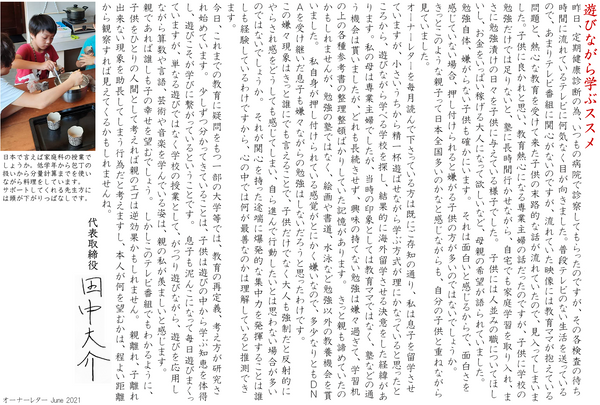 遊びながら学ぶススメ
昨日、定期健康診断の為、いつもの病院で診察してもらったのですが、その各検査の待ち
時間に流れていたテレビに何気なく目が向きました。普段テレビのない生活を送っている
ので、あまりテレビ番組に関心がないのですが、流れていた映像には教育ママが抱えている
問題と、熱心な教育を受けて来た子供の末路的な話が流れていたので、見入ってしまいま
した。子供に良かれと思い、教育熱心になる専業主婦の話だったのですが、子供には学校の
勉強だけでは足りないと、塾に長時間行かせながら、自宅でも家庭学習を取り入れ、ま
さに勉強漬けの日々を子供に与えている様子でした。子供には人並み以上の職についてほし
い、お金をいっぱい稼げる大人になって欲しいなど、母親の希望が語られていました。
勉強自体、嫌がらない子供も確かにいます。それは面白いと感じるからで、面白さを
感じていない場合、押し付けられると嫌がる子供の方が多いのではないでしょうか。
きっとこのような親子って日本全国多いのかなと感じながらも、自分の子供と重ねながら
見ていました。
オーナーレターを毎月読んで下さっている方は既にご存知の通り、私は息子を留学させ
ていますが、小さいうちから精一杯遊ばせながら学ぶ方式が理にかなっていると思ったと
ころから、遊びながら学べる学校を探し、結果的に海外留学させる決意をした経緯があ
ります。私の母は専業主婦でしたが、当時の印象としては教育ママではなく、塾などの通
う機会は貰いましたが、どれも長続きせず、興味の持てない勉強は嫌々過ぎて、学習机
の上の各種参考書の整理整頓ばかりしていた記憶があります。きっと親も諦めていたの
かもしれませんが、勉強の塾ではなく、絵画や書道、水泳など勉強以外の教養機会を貰
いました。私自身が押し付けられている感覚がとにかく嫌なので、多少なりともＤＮ
Ａを受け継いだ息子も嫌々ながらの勉強はしないだろうと思ったわけです。
この嫌々現象はきっと誰にでも言えることで、子供だけでなく大人も強制だと反射的に
やらされ感をどうしても感じてしまい、自ら進んで行動したいとは思わない場合が多い
のではないでしょうか。それが関心を持った途端に爆発的な集中力を発揮することは誰
もも経験しているわけですから、心の中では何が最善なのかは理解していると推測でき
ます。
今日、これまでの教育に疑問をもつ一部の大学等では、教育の再定義、考え方が研究さ
れ始めています。少しずつ分かってきていることは、子供は遊びの中から学ぶ知恵を体得
し、遊びこそが学びに繋がっているということです。息子も泥んこになって毎日遊びまくっ
ていますが、単なる遊びではなく学校の授業として、がっつり遊びながら、遊びを応用し
ながら算数や言語、芸術や音楽を学んでいる姿は、親の私が羨ましいと感じます。
親であれば誰しも子の幸せを望むでしょう。しかしこのテレビ番組でもわかるように、
子供をひとりの人間として考えれば親のエゴは逆効果かもしれません。親離れ、子離れ
出来ない現象を助長してしまう行為だと考えますし、本人が何を望むかは、程よい距離
から観察すれば見えてくるかもしれませんね。
日本で言えば家庭科の授業で
しょうか。低学年から包丁の
扱いから分量計算までを使い
ながら料理をしています。
サポートしてくれる先生方に
は頭が下がりっぱなしです。
代表取締役 田中大介
オーナーレター June 2021